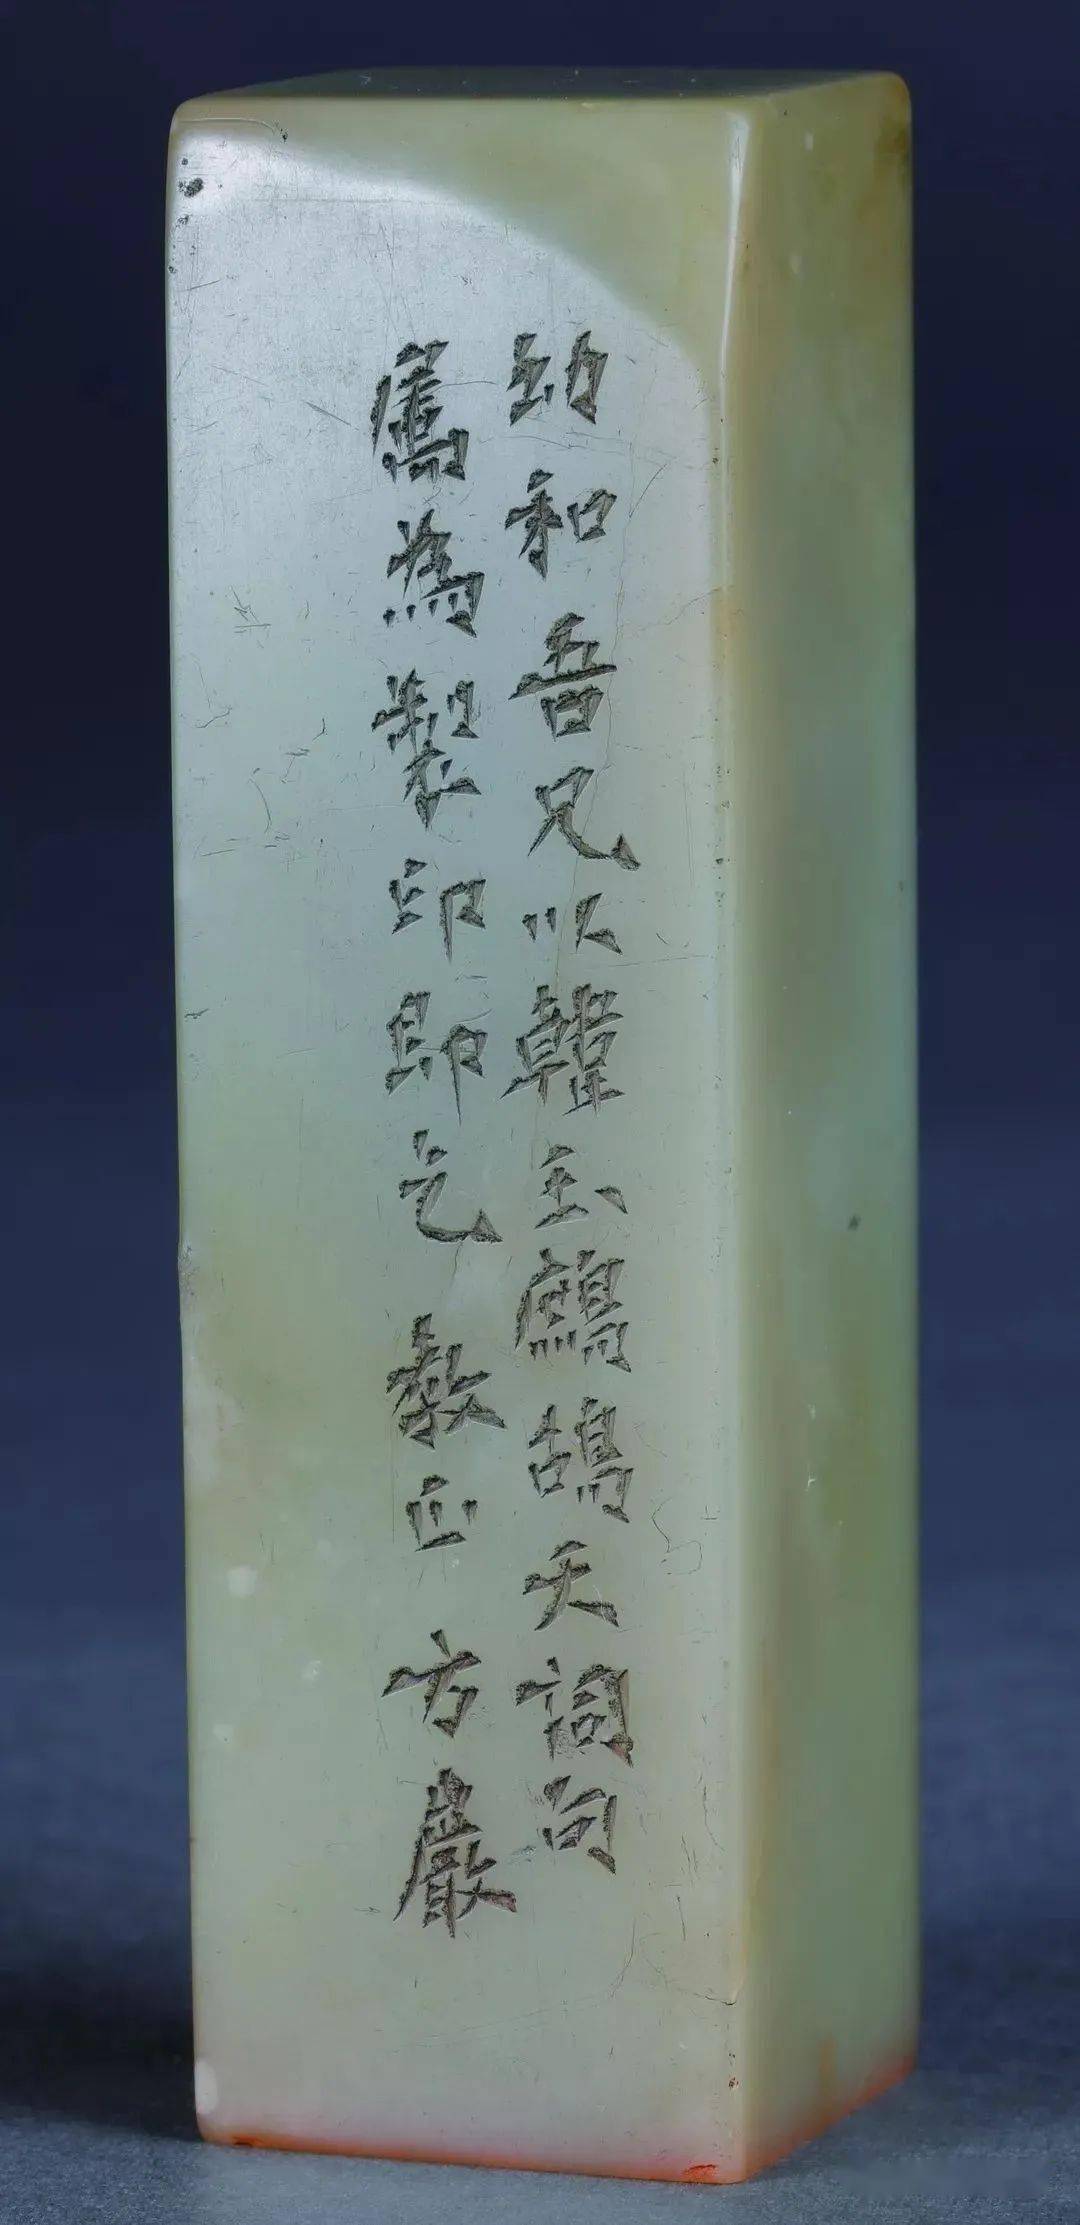 幼和吾兄以韓玉鷓鴣天詞句
属為製印即乞 教正 方巖